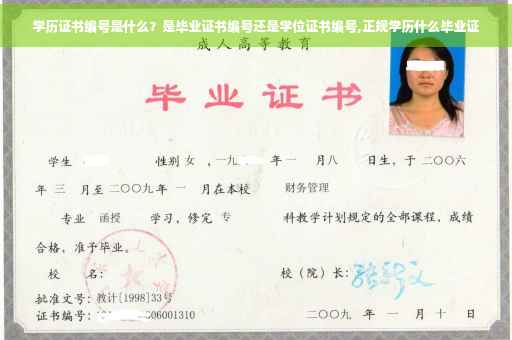 学历证书编号是什么？是毕业证书编号还是学位证书编号,正规学历什么毕业证
成人高等教育
毕业证书
学生 性别 女 ，一九 年一 月八 日生，于二〇〇六
年 三 月至二〇〇九年 一 月在本校 财务管理
专业 函授 学习，修完 专 科教学计划规定的全部课程，成绩
合格，准予毕业。
校 名： 校（院）长：
批准文号：教计[1998]33号
证书编号： 06001310 二〇〇九 年 一 月 十 日